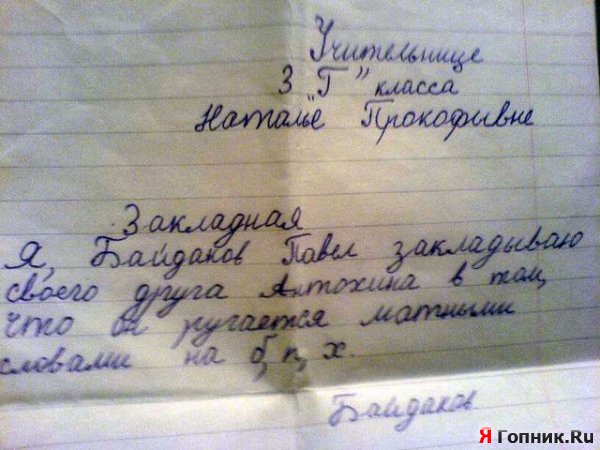 Учительнице
3 "Г" класса
Наталье Прокофивне
Закладная
Я, Байдаков Павел закладываю
своего друга Антохина в том,
что он ругается матными
словами на б, п, х.
Байдаков
Я Гопник.Ru